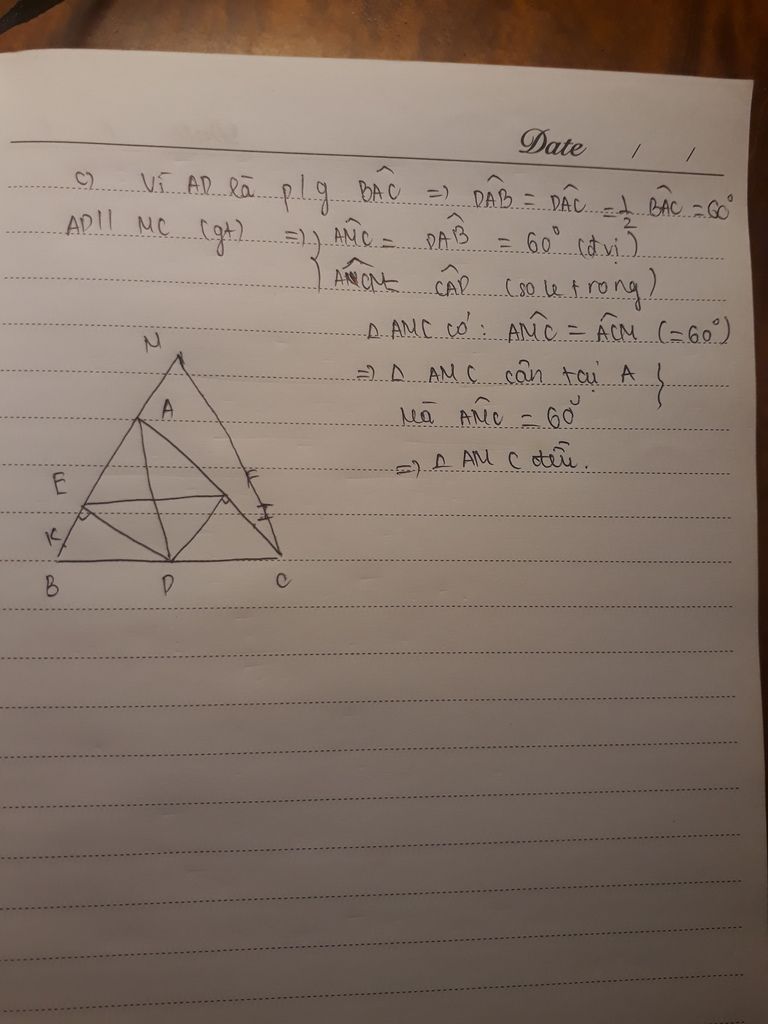 Date / /
c) Vì AD là p/g BÂC => DÂB = DÂC = 1/2 BÂC = 60°
AD // MC (gt) => } AM̂C = DÂB = 60° (đvị)
{ AĈM = CÂD (so le trong)
Δ AMC có: AM̂C = AĈM (=60°)
=> Δ AMC cân tại A }
Mà AM̂C = 60°
=> Δ AMC đều.
M
A
E F
I
K
B D C